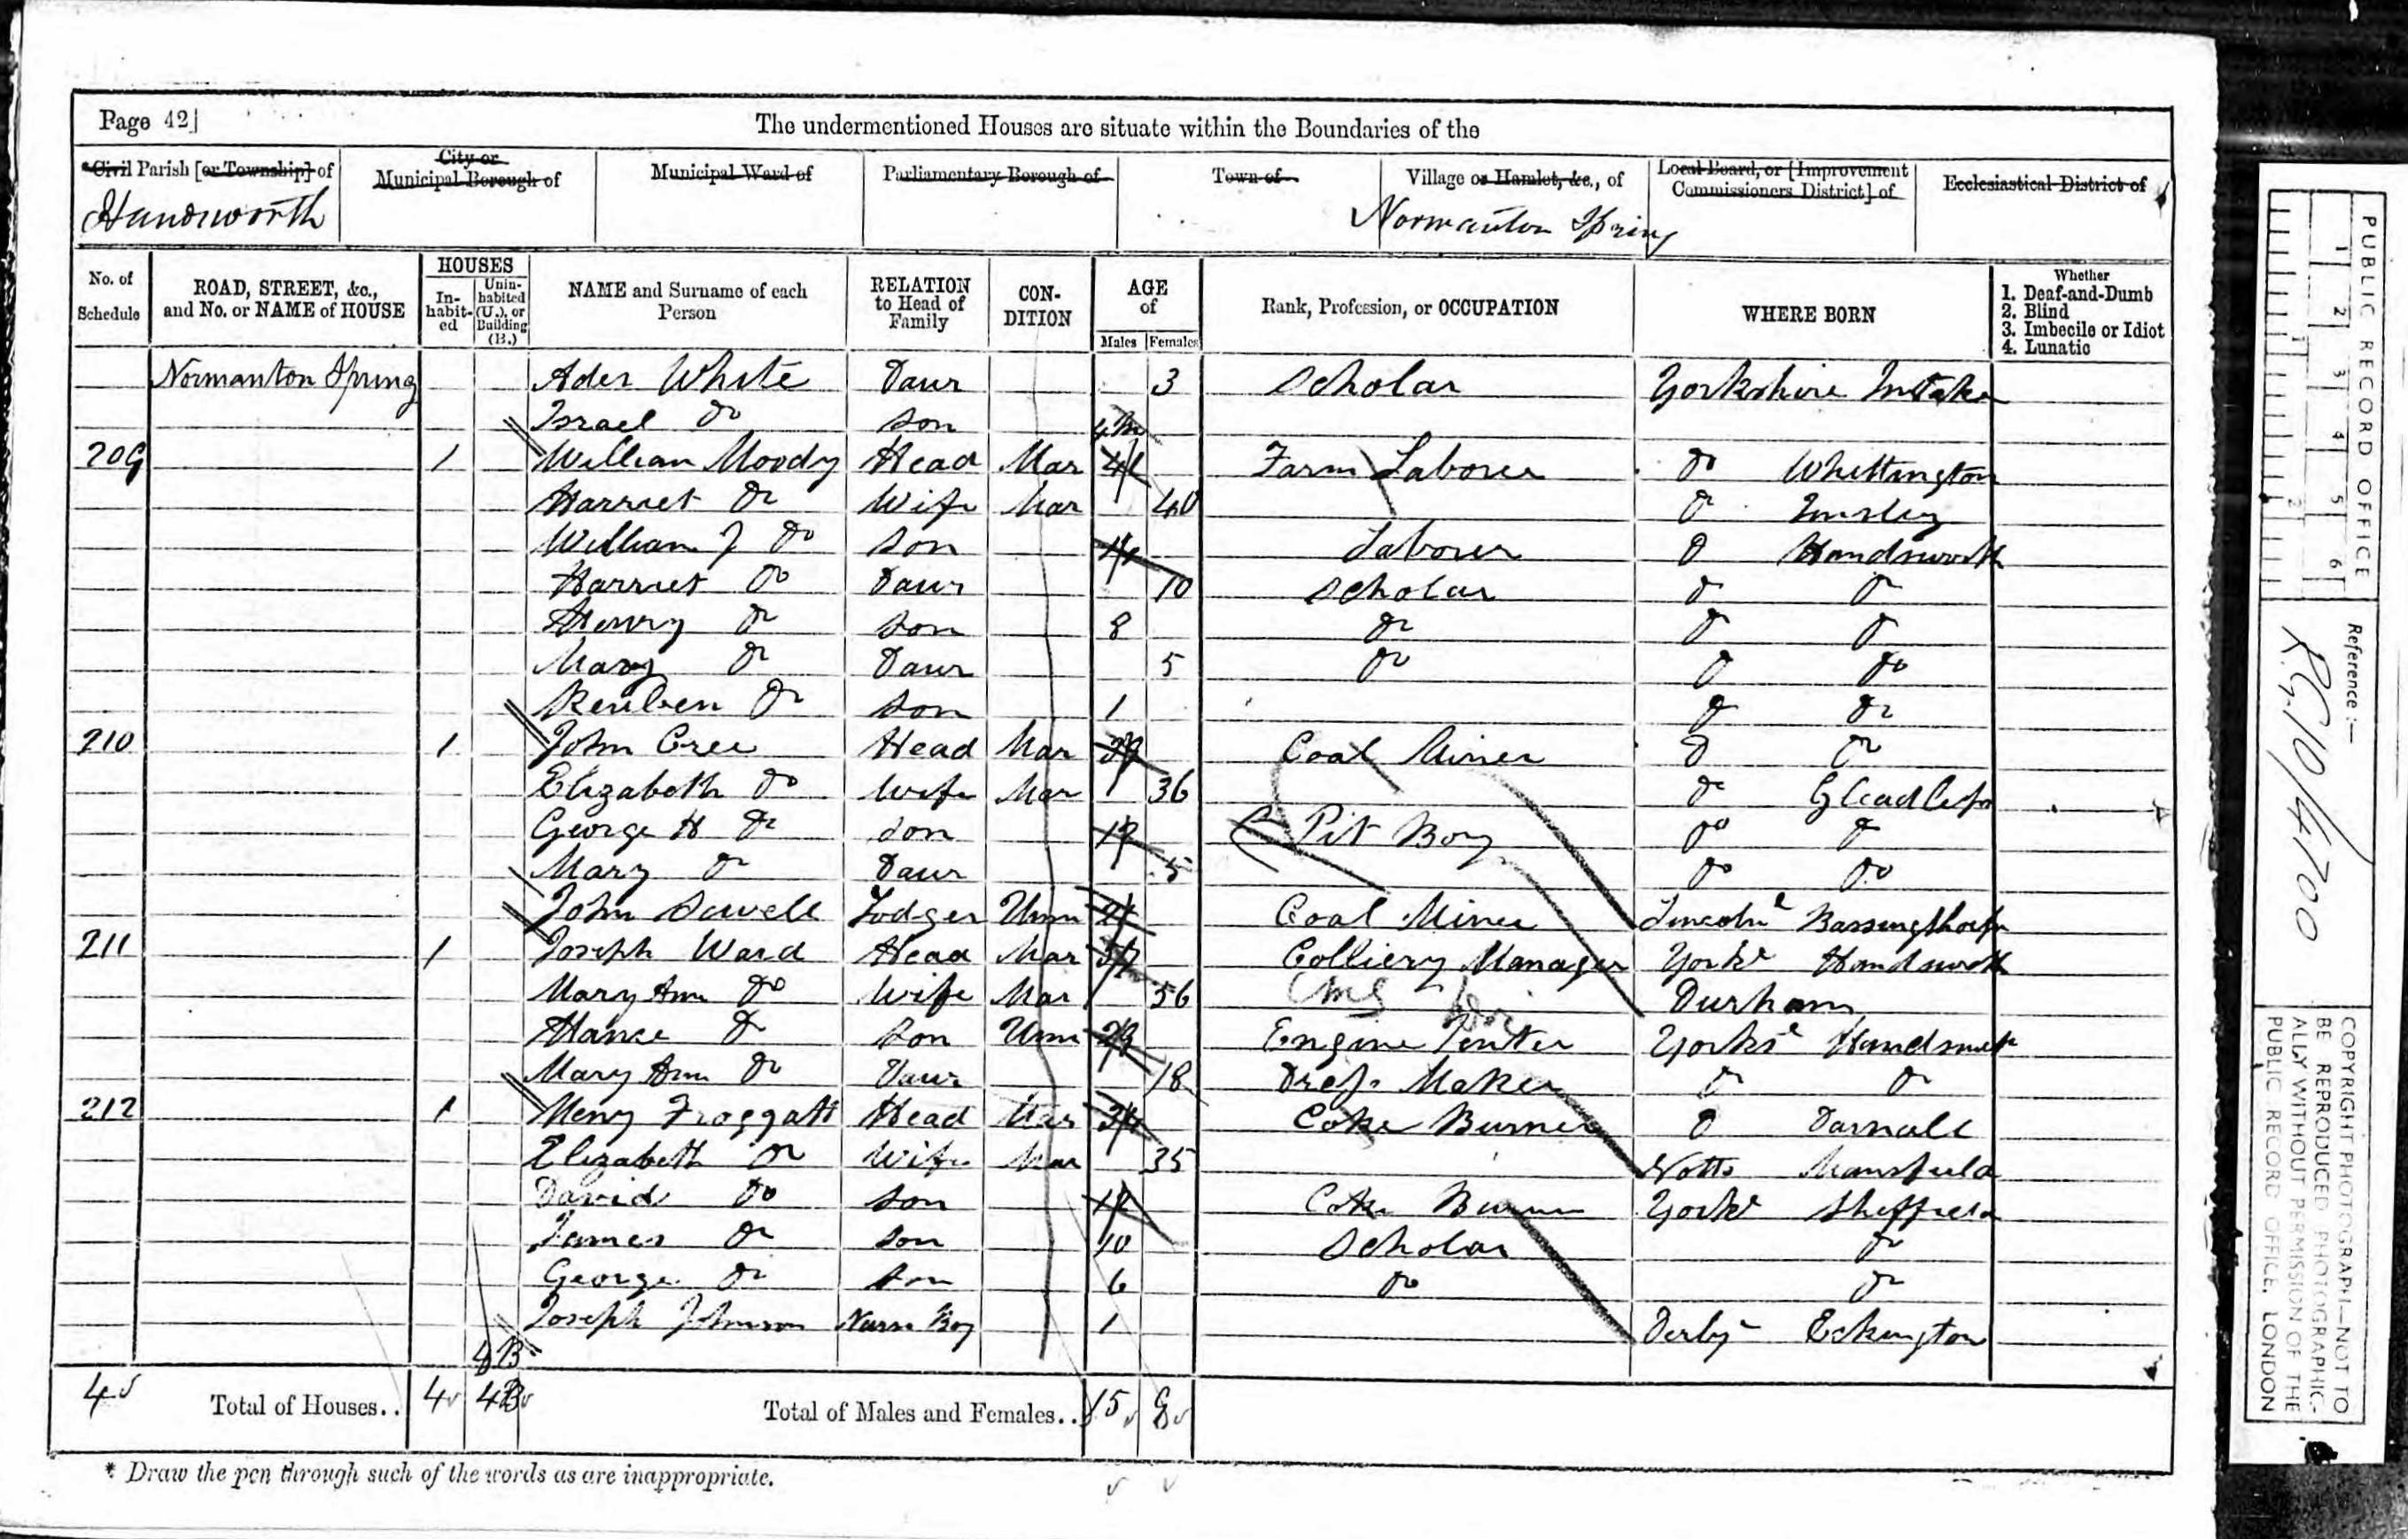 Page 42]
The undermentioned Houses are situate within the Boundaries of the
*Civil Parish [or Township] of
City or Municipal Borough of
Municipal Ward of
Parliamentary Borough of
Town of
Village or Hamlet, &c., of
Local Board, or [Improvement Commissioners District] of
Ecclesiastical District of
Handsworth
Normanton Spring
No. of Schedule
ROAD, STREET, &c., and No. or NAME of HOUSE
HOUSES
In-habit-ed
Unin-habited (U.), or Building (B.)
NAME and Surname of each Person
RELATION to Head of Family
CON-DITION
AGE of
Males
Females
Rank, Profession, or OCCUPATION
WHERE BORN
Whether
1. Deaf-and-Dumb
2. Blind
3. Imbecile or Idiot
4. Lunatic
Normanton Spring Ader White Daur 3 Scholar Yorkshire Intake
Israel Do Son
209 1 William Moody Head Mar 41 Farm Laborer Do Whittington
Harriet Do Wife Mar 40 Do Tinsley
William J Do Son Laborer Do Handsworth
Harriet Do Daur 10 Scholar Do Do
Henry Do Son 8 Do Do Do
Mary Do Daur 5 Do Do Do
Reuben Do Son 1 Do Do
210 1 John Cree Head Mar 39 Coal Miner Do Do
Elizabeth Do Wife Mar 36 Do Gleadless
George H Do Son Pit Boy Do Do
Mary Do Daur 5 Do Do
John Sewell Lodger Unm Coal Miner Lincoln Bassingthorpe
211 1 Joseph Ward Head Mar 57 Colliery Manager Yorks Handsworth
Mary Ann Do Wife Mar 56 Durham
Hance Do Son Unm 23 Engine Tenter Yorks Handsworth
Mary Ann Do Daur 18 Dress Maker Do Do
212 1 Henry Froggatt Head Mar 34 Coke Burner Do Darnall
Elizabeth Do Wife Mar 35 Notts Mansfield
David Do Son Coke Burner Yorks Sheffield
James Do Son 10 Scholar Do
George Do Son 6 Do Do
Joseph Johnson Nurse Boy 1 Derby Eckington
4B
4 Total of Houses.. 4 4B Total of Males and Females.. 15 8
* Draw the pen through such of the words as are inappropriate.
PUBLIC RECORD OFFICE
1 2 3 4 5 6
Reference:—
R.G. 10/4700
COPYRIGHT PHOTOGRAPH—NOT TO
BE REPRODUCED PHOTOGRAPHIC-
ALLY WITHOUT PERMISSION OF THE
PUBLIC RECORD OFFICE, LONDON